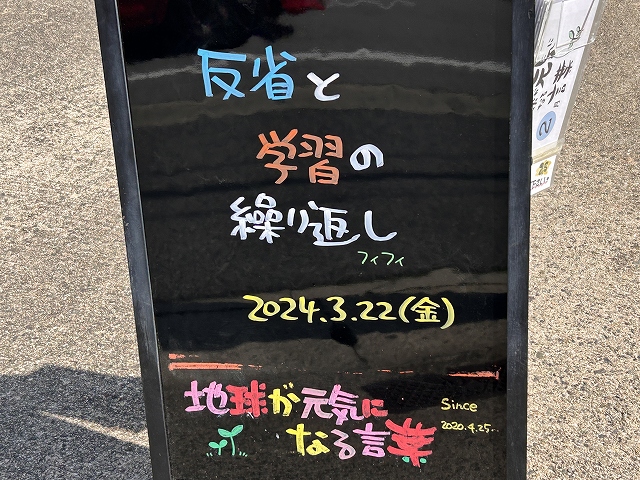 反省と
学習の
繰り返し
フィフィ
2024.3.22(金)
地球が元気に
なる言葉
Since
2020.4.25..